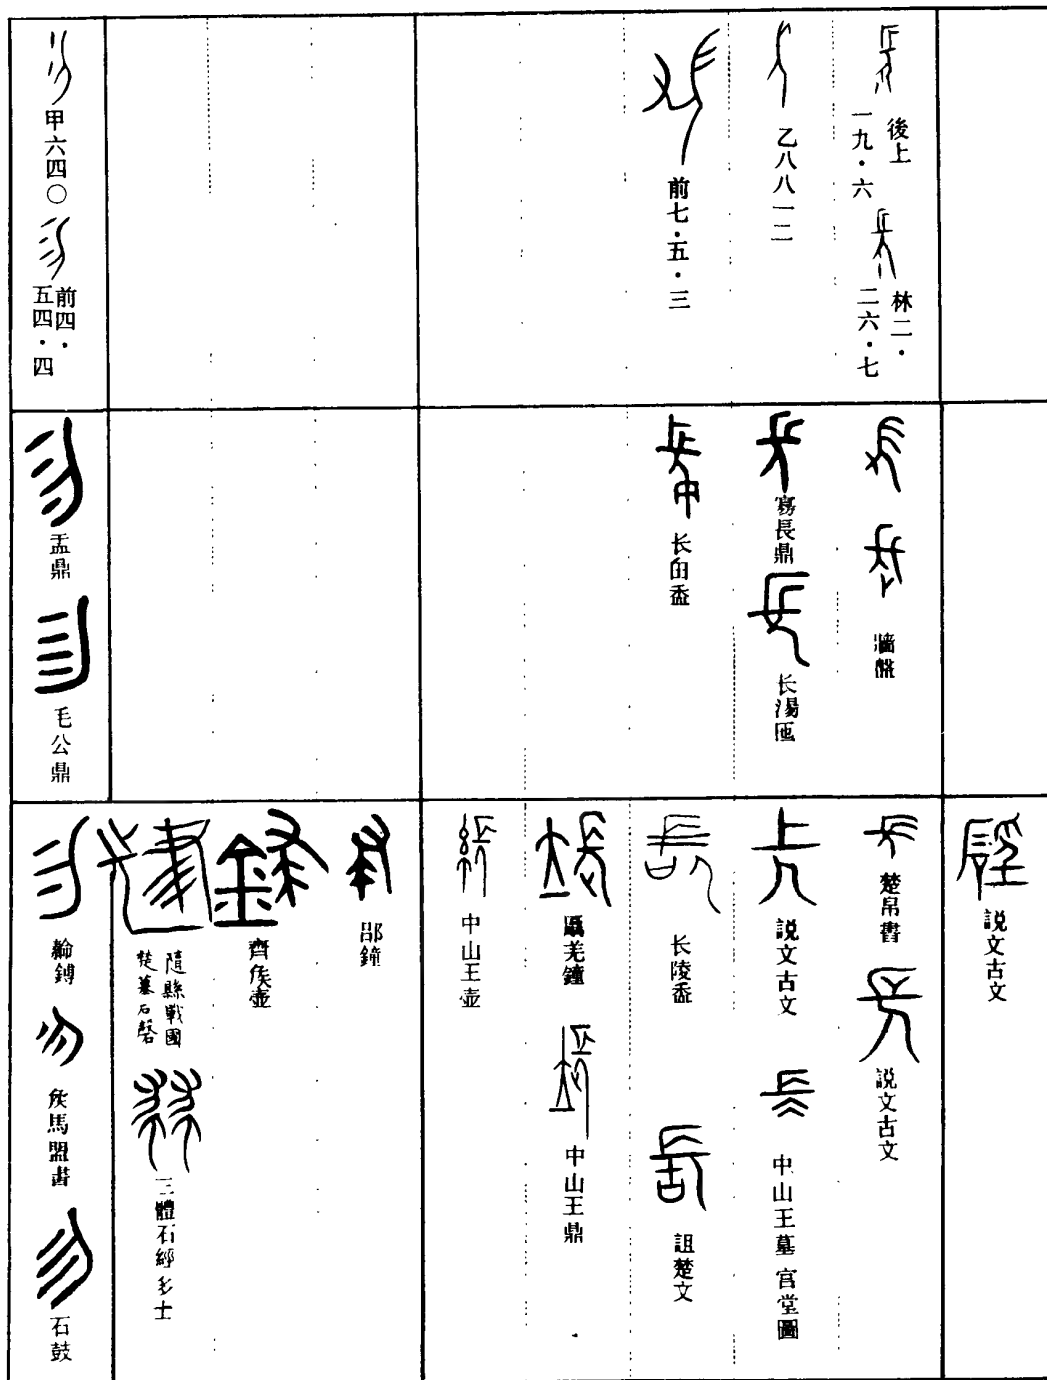 後上
一九・六
林二・
二六・七
乙八八一二
前七・五・三
甲六四〇
前四・
五四・四
牆盤
寡長鼎
长湯匜
长甶盉
盂鼎
毛公鼎
説文古文
楚帛書
説文古文
説文古文
中山王墓宫堂圖
长陵盉
詛楚文
驫羌鐘
中山王鼎
中山王壺
邵鐘
齊侯壺
隨縣戰國
楚墓石磬
三體石經多士
綸鎛
侯馬盟書
石鼓